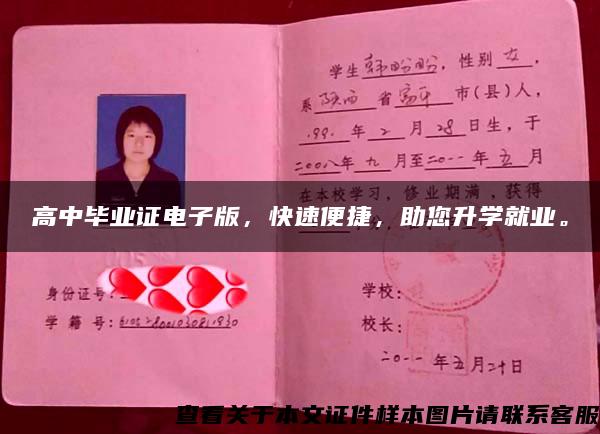 学生韩盼盼，性别女，
系陕西省富平市(县)人，
199 年2月28日生，于
二〇〇八年九月至二〇一一年五月
在本校学习，修业期满，获得
高中毕业证电子版，快速便捷，助您升学就业。
身份证号：
学籍号：
学校：
校长：
二〇一一年五月二十日
查看关于本文证件样本图片请联系客服